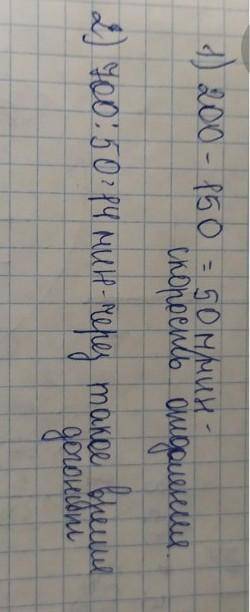 1) 200 - 150 = 50 м/мин -
скорость отдаления.
2) 700 : 50 = 14 мин - через такое время
догонит